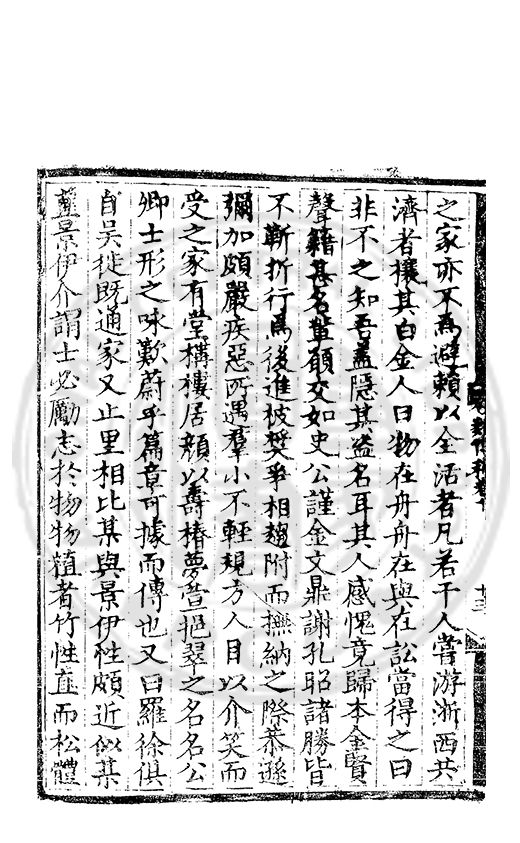 之家亦不為避賴以全活者凡若干人嘗游浙西共
濟者攘其白金人曰物在舟舟在與在訟當得之曰
非不之知吾盖隱其盜名耳其人感愧竟歸本金賢
聲籍甚名輩願交如史公謹金文鼎謝孔昭諸勝皆
不靳折行為後進被奬爭相趨附而撫納之際恭遜
彌加頗嚴疾惡所遇羣小不輕規方人目以介笑而
受之家有堂構樓居顔以壽椿夢萱挹翠之名名公
卿士形之咏歎蔚乎篇章可據而傳也又曰羅徐俱
自吳徙既通家又止里相比某與景伊性頗近似某
葢景伊介謂士必勵志於物物植者竹性直而松體
十三